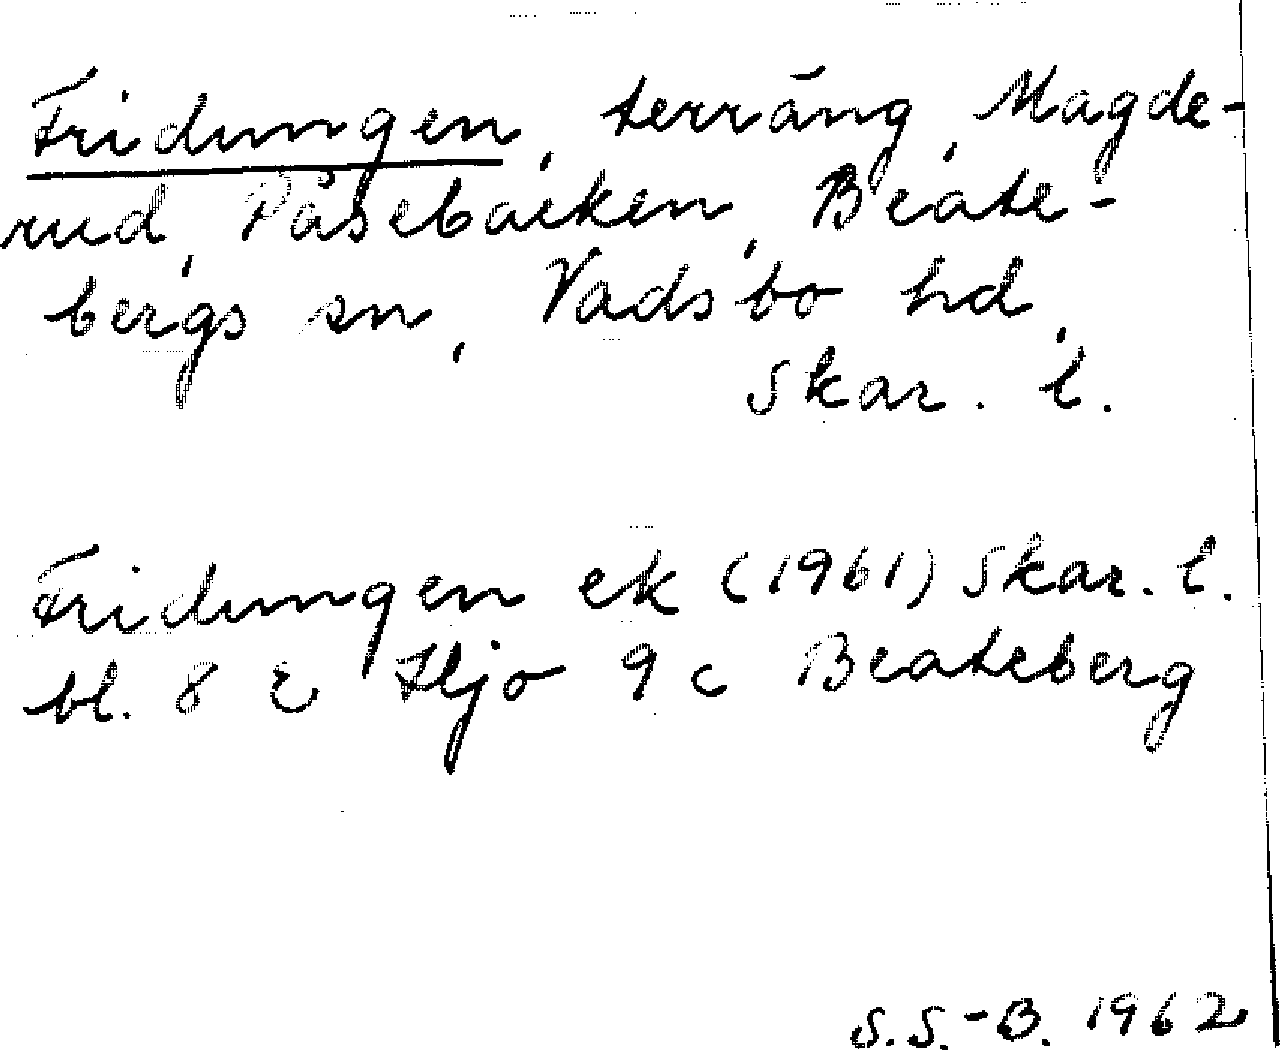 Fridungen, terräng, Magde-
rud, Påsebacken, Beate-
bergs sn, Vadsbo hd,
Skar. l.
Fridungen ek (1961) Skar. l.
bl. 8 E Hjo 9 c Beateberg
S.S.-B. 1962